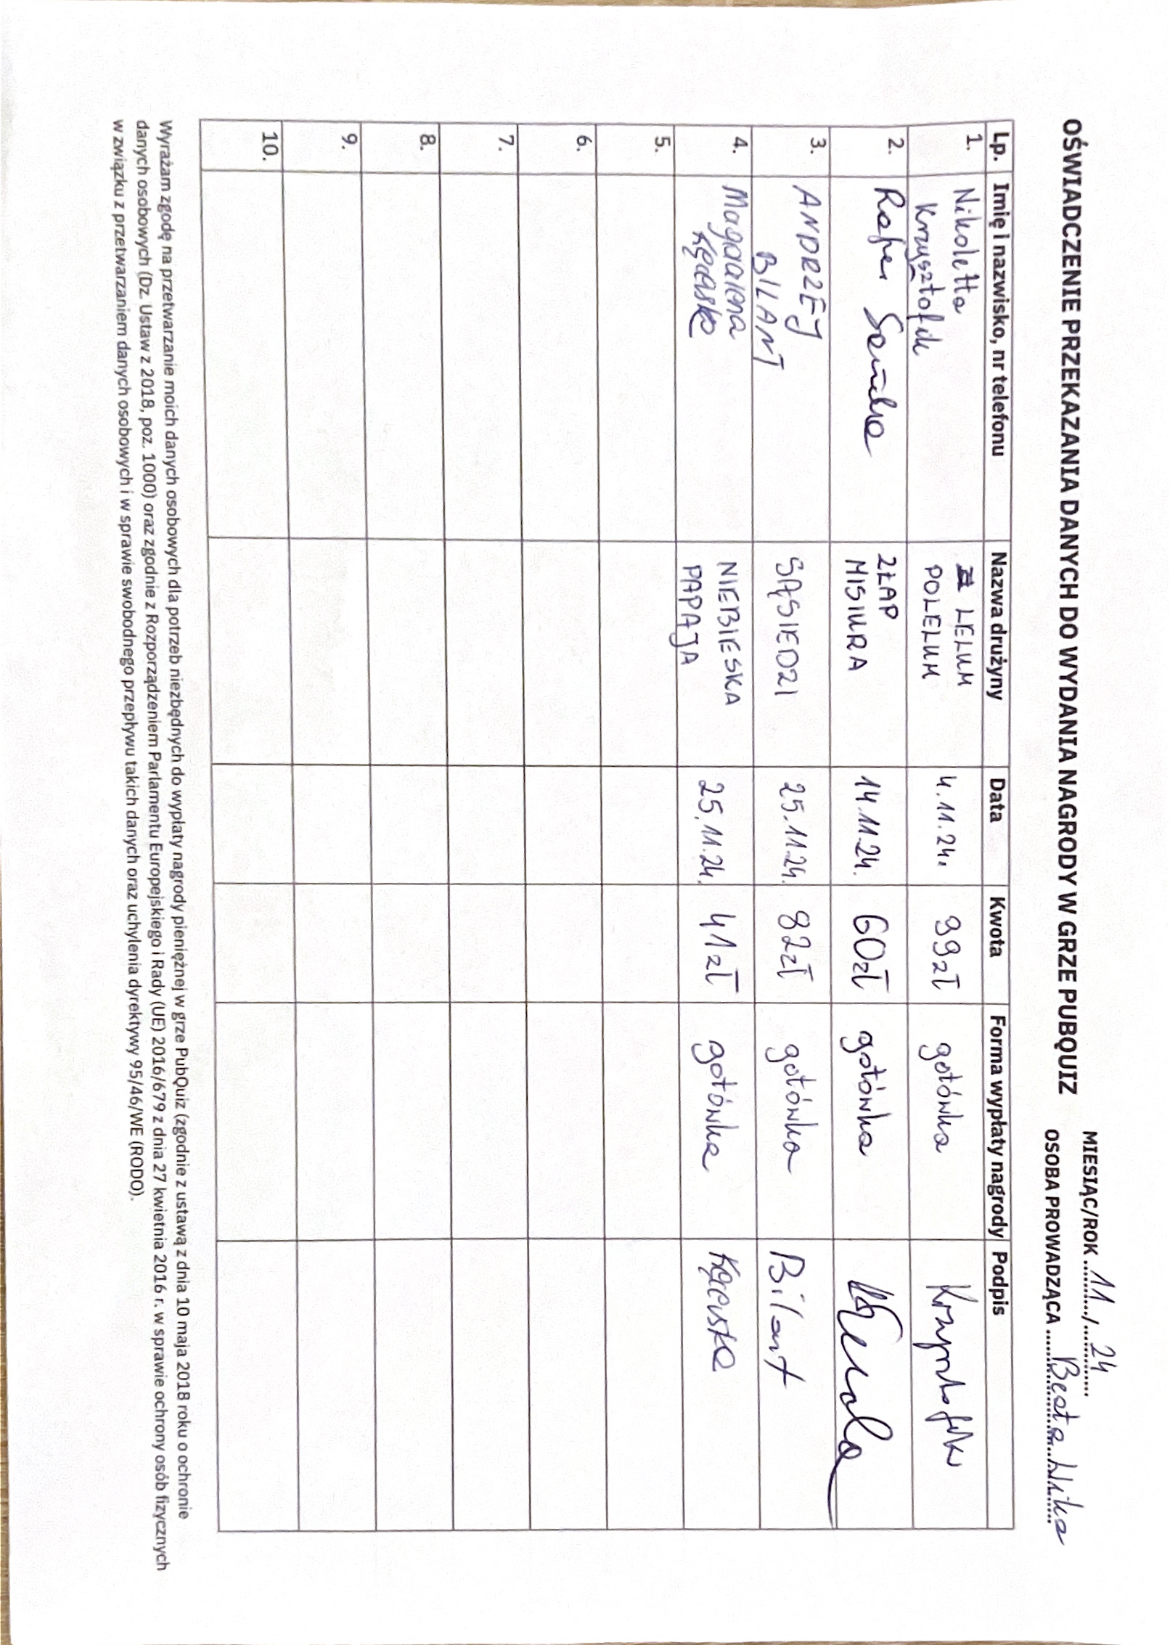 OŚWIADCZENIE PRZEKAZANIA DANYCH DO WYDANIA NAGRODY W GRZE PUBQUIZ
MIESIĄC/ROK 11/24
OSOBA PROWADZĄCA Beata
Lp. Imię i nazwisko, nr telefonu Nazwa drużyny Data Kwota Forma wypłaty nagrody Podpis
1. Nikoletta Krzysztofik LELUM POLELUM 4.11.24. 99zł gotówka Krzysztofik
2. ZŁAP MISIURA 14.11.24. 60zł gotówka
3. ANDRZEJ BILANT SĄSIEDZI 25.11.24. 82zł gotówka Bilant
4. Magdalena NIEBIESKA PAPAJA 25.11.24. 41zł gotówka
5.
6.
7.
8.
9.
10.
Wyrażam zgodę na przetwarzanie moich danych osobowych dla potrzeb niezbędnych do wypłaty nagrody pieniężnej w grze PubQuiz (zgodnie z ustawą z dnia 10 maja 2018 roku o ochronie
danych osobowych (Dz. Ustaw z 2018, poz. 1000) oraz zgodnie z Rozporządzeniem Parlamentu Europejskiego i Rady (UE) 2016/679 z dnia 27 kwietnia 2016 r. w sprawie ochrony osób fizycznych
w związku z przetwarzaniem danych osobowych i w sprawie swobodnego przepływu takich danych oraz uchylenia dyrektywy 95/46/WE (RODO).